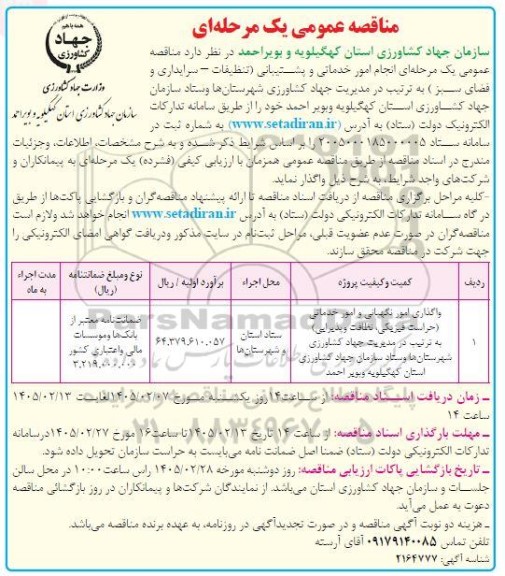 مناقصه عمومی یک مرحله‌ای
همه با هم
جهاد
کشاورزی
وزارت جهاد کشاورزی
سازمان جهاد کشاورزی استان کهگیلویه و بویراحمد
سازمان جهاد کشاورزی استان کهگیلویه و بویراحمد در نظر دارد مناقصه
عمومی یک مرحله‌ای انجام امور خدماتی و پشتیبانی (تنظیفات – سرایداری و
فضای سبز ) به ترتیب در مدیریت جهاد کشاورزی شهرستان‌ها وستاد سازمان
جهاد کشاورزی استان کهگیلویه وبویر احمد خود را از طریق سامانه تدارکات
الکترونیک دولت (ستاد) به آدرس (www.setadiran.ir) به شماره ثبت در
سامانه ستاد ۲۰۰۵۰۰۰۱۸۵۰۰۰۰۰۵ را بر اساس شرایط ذکر شده و به شرح مشخصات، اطلاعات، وجزئیات
مندرج در اسناد مناقصه از طریق مناقصه عمومی همزمان با ارزیابی کیفی (فشرده) یک مرحله‌ای به پیمانکاران و
شرکت‌های واجد شرایط، به شرح ذیل واگذار نماید.
-کلیه مراحل برگزاری مناقصه از دریافت اسناد مناقصه تا ارائه پیشنهاد مناقصه‌گران و بازگشایی پاکت‌ها از طریق
در گاه سامانه تدارکات الکترونیکی دولت (ستاد) به آدرس www.setadiran.ir انجام خواهد شد ولازم است
مناقصه‌گران در صورت عدم عضویت قبلی، مراحل ثبت‌نام در سایت مذکور ودریافت گواهی امضای الکترونیکی را
جهت شرکت در مناقصه محقق سازند.
ردیف | کمیت وکیفیت پروژه | محل اجراء | برآورد اولیه / ریال | نوع ومبلغ ضمانتنامه (ریال) | مدت اجراء به ماه
۱ | واگذاری امور نگهبانی و امور خدماتی
(حراست فیزیکی، نظافت وپذیرایی)
به ترتیب در مدیریت جهاد کشاورزی
شهرستان‌ها وستاد سازمان جهاد کشاورزی
استان کهگیلویه وبویر احمد
ستاد استان
و شهرستان‌ها
۶۴،۳۷۹،۶۱۰،۰۵۷
ضمانت‌نامه معتبر از
بانک‌ها وموسسات
مالی واعتباری کشور
۳،۲۱۹،۰۰۰،۰۰۰
ـ زمان دریافت اسناد مناقصه: از ساعت۱۴روز یکشنبه مورخ ۱۴۰۵/۰۲/۰۷لغایت ۱۴۰۵/۰۲/۱۳
ساعت ۱۴
ـ مهلت بارگذاری اسناد مناقصه: از ساعت ۱۴ تاریخ ۱۴۰۵/۰۲/۱۳ تا ساعت۱۶ مورخ ۱۴۰۵/۰۲/۲۷درسامانه
تدارکات الکترونیکی دولت (ستاد) ضمنا اصل ضمانت نامه می‌بایست به حراست سازمان تحویل داده شود.
ـ تاریخ بازگشایی پاکات ارزیابی مناقصه: روز دوشنبه مورخه ۱۴۰۵/۰۲/۲۸ راس ساعت ۱۰:۰۰ در محل سالن
جلسات و سازمان جهاد کشاورزی استان می‌باشد. از نمایندگان شرکت‌ها و پیمانکاران در روز بازگشائی مناقصه
دعوت به عمل می‌آید.
ـ هزینه دو نوبت آگهی مناقصه و در صورت تجدیدآگهی در روزنامه، به عهده برنده مناقصه می‌باشد.
تلفن تماس ۰۹۱۷۹۱۴۰۰۸۵ آقای آرسته
شناسه آگهی: ۲۱۶۴۷۷۷
ParsNamadData
پایگاه اطلاع رسانی مناقصه و مزایده
۰۲۱-۸۸۳۴۹۶۷۰-۵